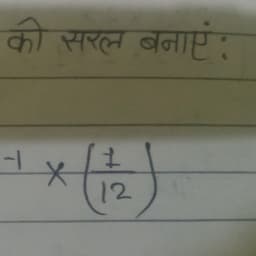 को सरल बनाएं:
-1 × (1/12)